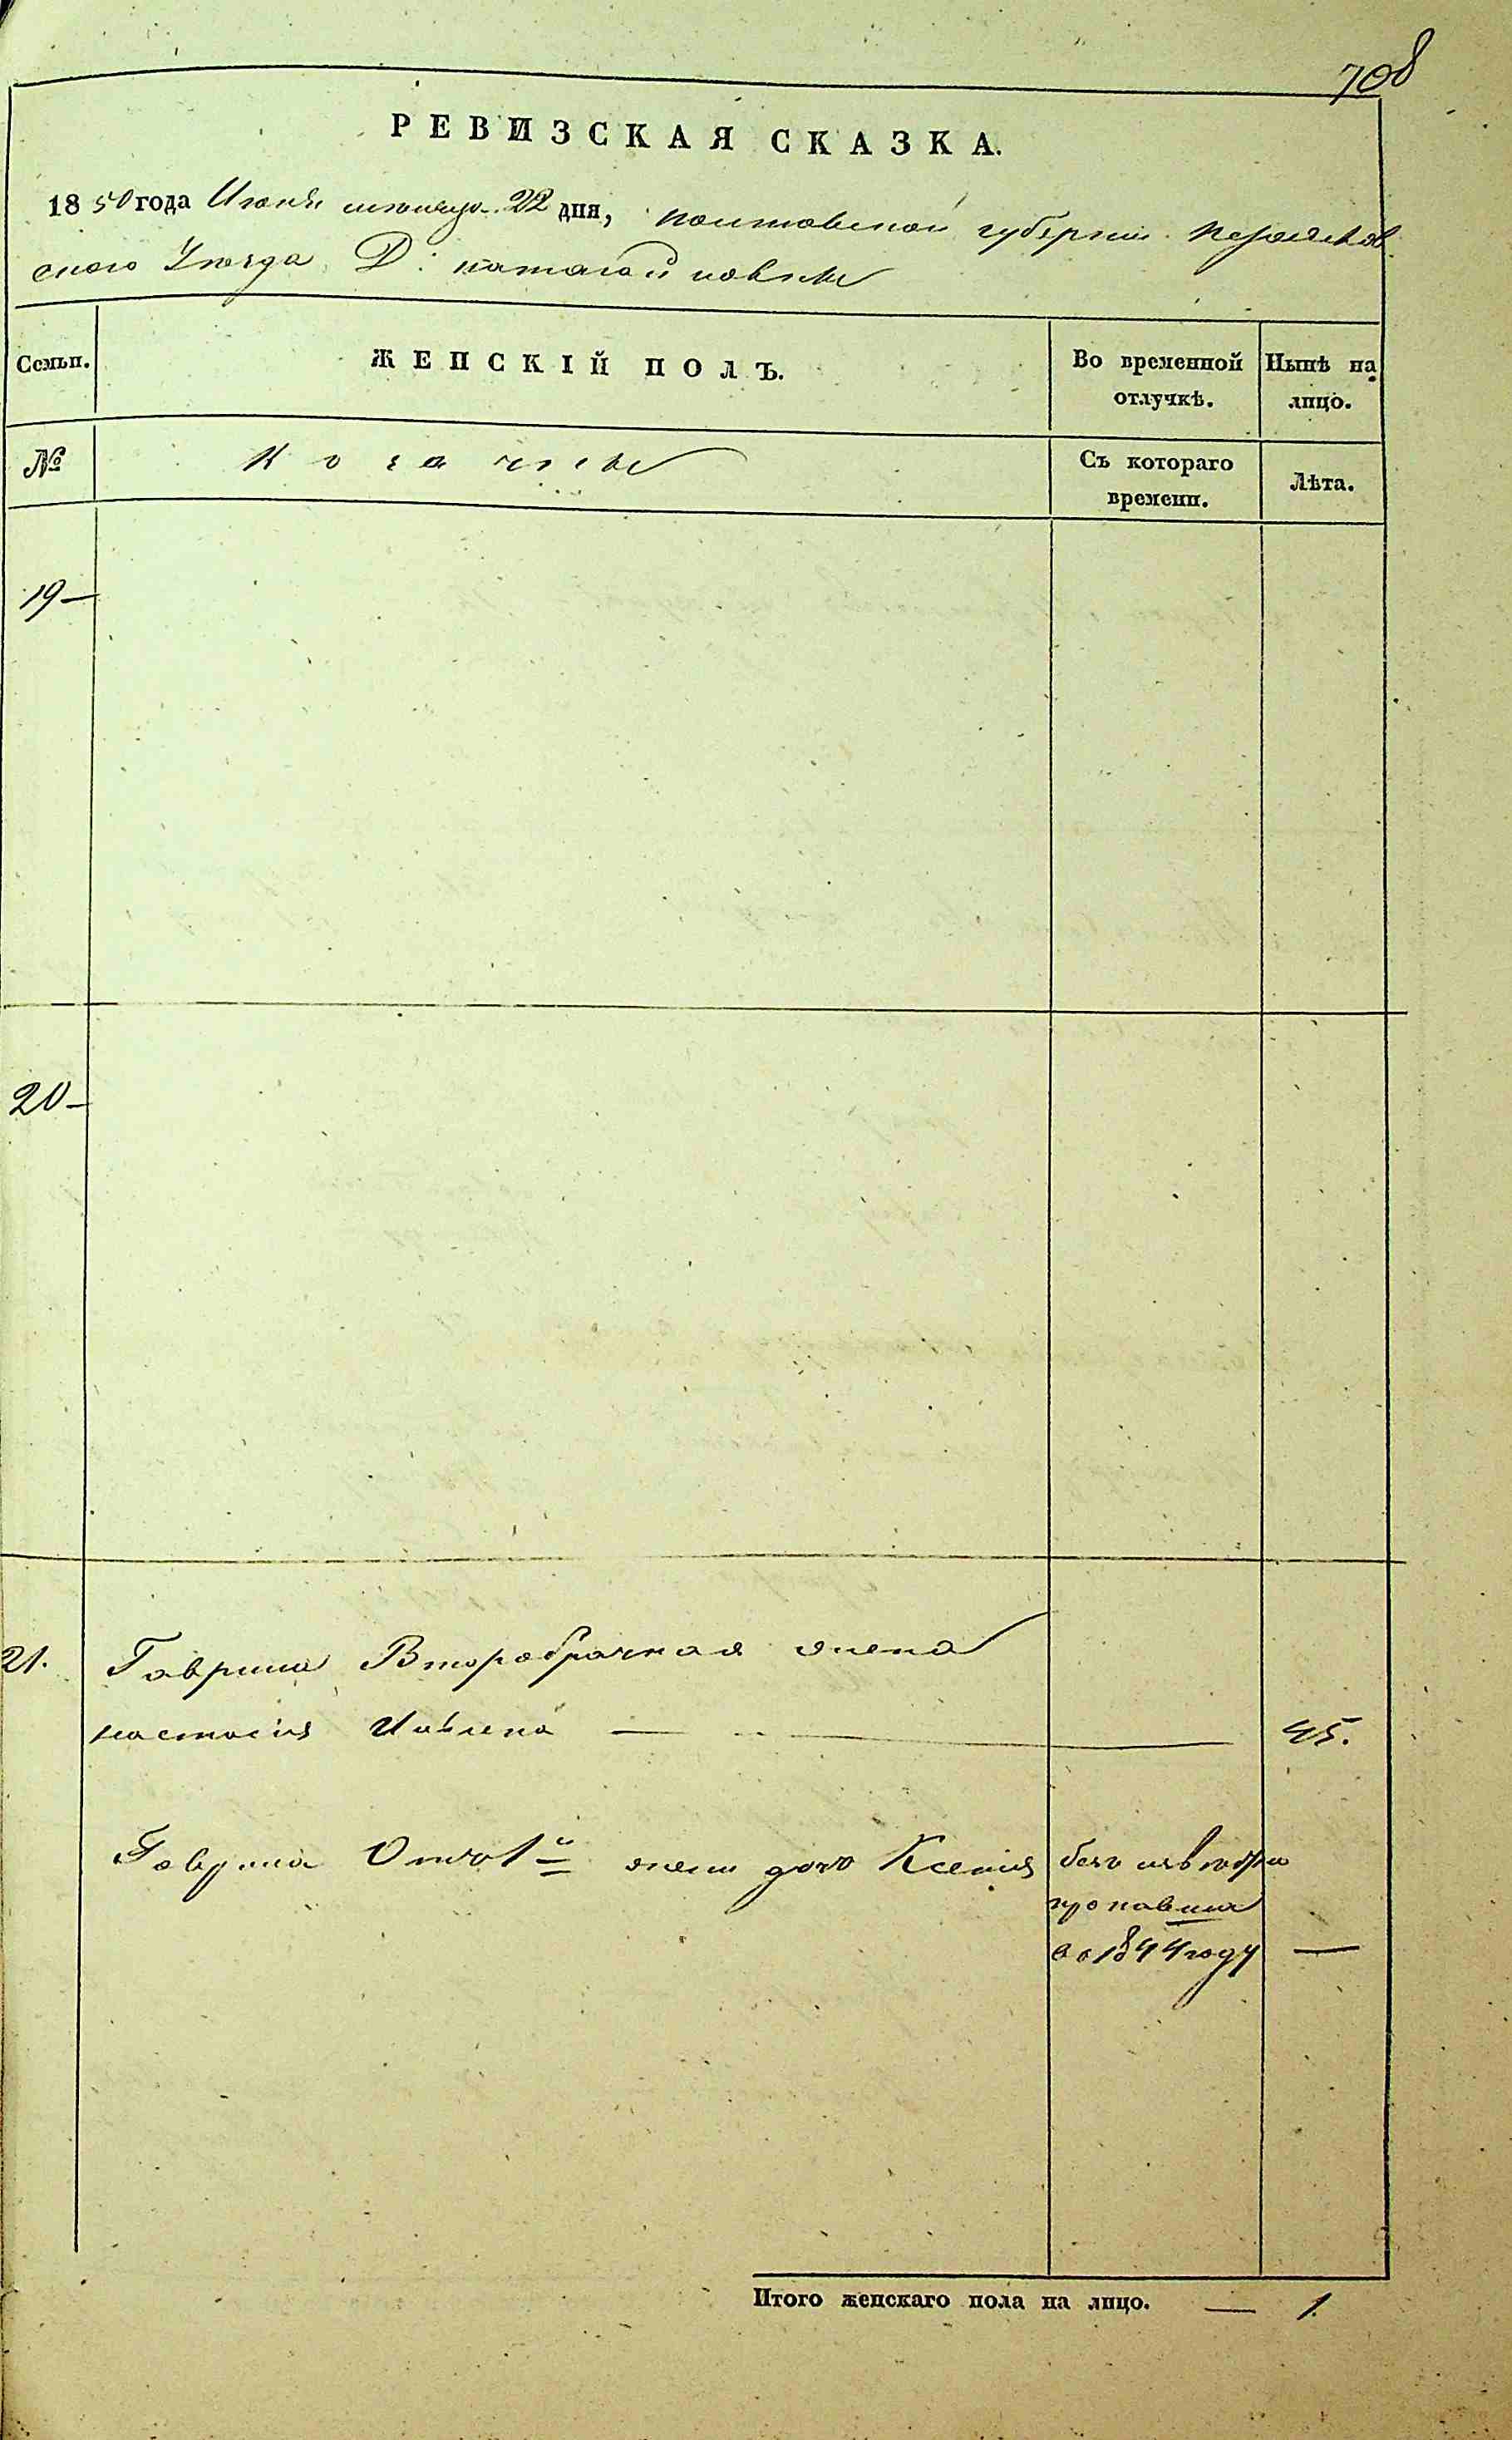 708
РЕВИЗСКАЯ СКАЗКА.
1850 года Июня месяца 22 дня, Полтавской губернии Переяслов
ского Уезда Д:
Семьи.
ЖЕНСКІЙ ПОЛЪ.
Во временной отлучкѣ.
Нынѣ на лицо.
№
Козачьи
Съ котораго времени.
Лѣта.
19
20
21. Гаврила Второбрачная жена
Настасія Ивлева 45.
Гаврила Отъ 1й жены дочь Ксенія
безъ
пропавша
въ 1844 году —
Итого женскаго пола на лицо. — 1.